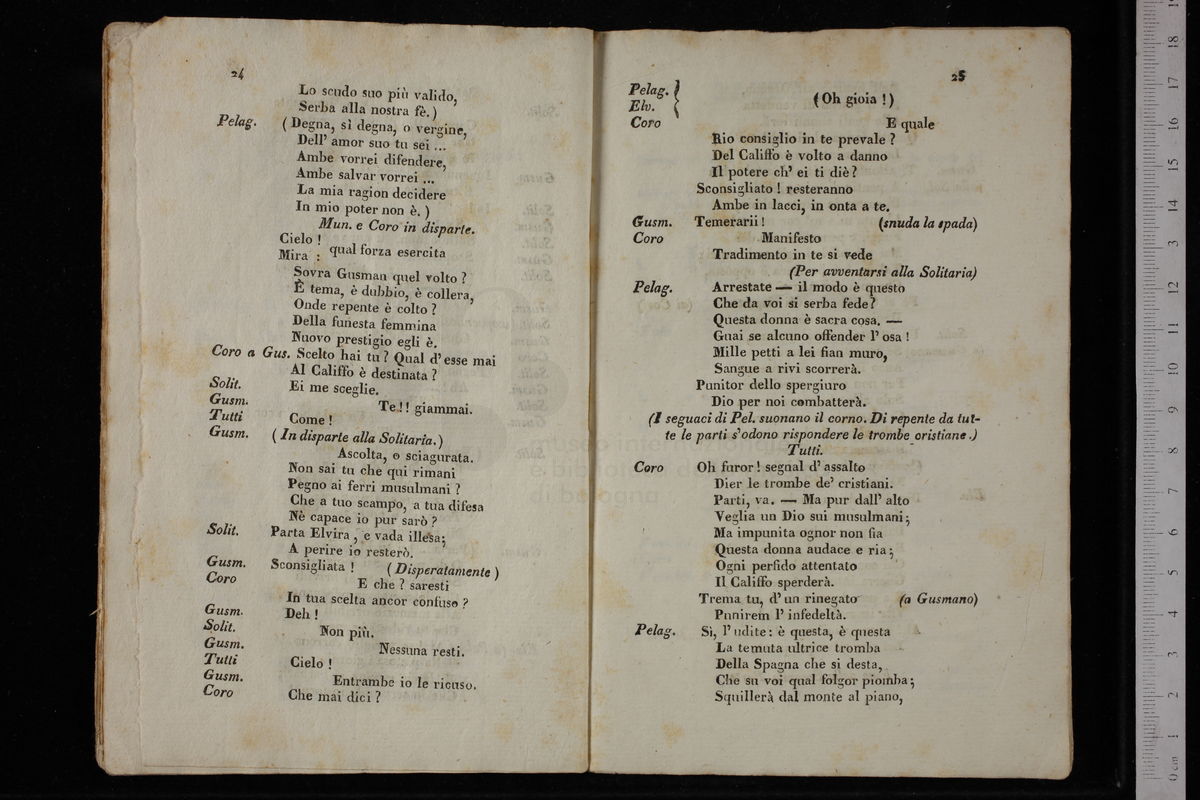 24
Lo scudo suo più valido,
Serba alla nostra fè.)
Pelag. (Degna, sì degna, o vergine,
Dell' amor suo tu sei ...
Ambe vorrei difendere,
Ambe salvar vorrei ...
La mia ragion decidere
In mio poter non è.)
Mun. e Coro in disparte.
Cielo !
Mira : qual forza esercita
Sovra Gusman quel volto ?
È tema, è dubbio, è collera,
Onde repente è colto ?
Della funesta femmina
Nuovo prestigio egli è.
Coro a Gus. Scelto hai tu ? Qual d' esse mai
Al Califfo è destinata ?
Solit. Ei me sceglie.
Gusm. Te !! giammai.
Tutti Come !
Gusm. (In disparte alla Solitaria.)
Ascolta, o sciagurata.
Non sai tu che qui rimani
Pegno ai ferri musulmani ?
Che a tuo scampo, a tua difesa
Nè capace io pur sarò ?
Solit. Parta Elvira, e vada illesa;
A perire io resterò.
Gusm. Sconsigliata ! (Disperatamente)
Coro E che ? saresti
In tua scelta ancor confuso ?
Gusm. Deh !
Solit. Non più.
Gusm. Nessuna resti.
Tutti Cielo !
Gusm. Entrambe io le ricuso.
Coro Che mai dici ?
25
Pelag. }
Elv. } (Oh gioia !)
Coro E quale
Rio consiglio in te prevale ?
Del Califfo è volto a danno
Il potere ch' ei ti diè ?
Sconsigliato ! resteranno
Ambe in lacci, in onta a te.
Gusm. Temerarii ! (snuda la spada)
Coro Manifesto
Tradimento in te si vede
(Per avventarsi alla Solitaria)
Pelag. Arrestate — il modo è questo
Che da voi si serba fede ?
Questa donna è sacra cosa. —
Guai se alcuno offender l' osa !
Mille petti a lei fian muro,
Sangue a rivi scorrerà.
Punitor dello spergiuro
Dio per noi combatterà.
(I seguaci di Pel. suonano il corno. Di repente da tut-
te le parti s'odono rispondere le trombe cristiane.)
Tutti.
Coro Oh furor ! segnal d' assalto
Dier le trombe de' cristiani.
Parti, va. — Ma pur dall' alto
Veglia un Dio sui musulmani;
Ma impunita ognor non fia
Questa donna audace e ria;
Ogni perfido attentato
Il Califfo sperderà.
Trema tu, d' un rinegato (a Gusmano)
Punirem l' infedeltà.
Pelag. Sì, l' udite: è questa, è questa
La temuta ultrice tromba
Della Spagna che si desta,
Che su voi qual folgor piomba;
Squillerà dal monte al piano,